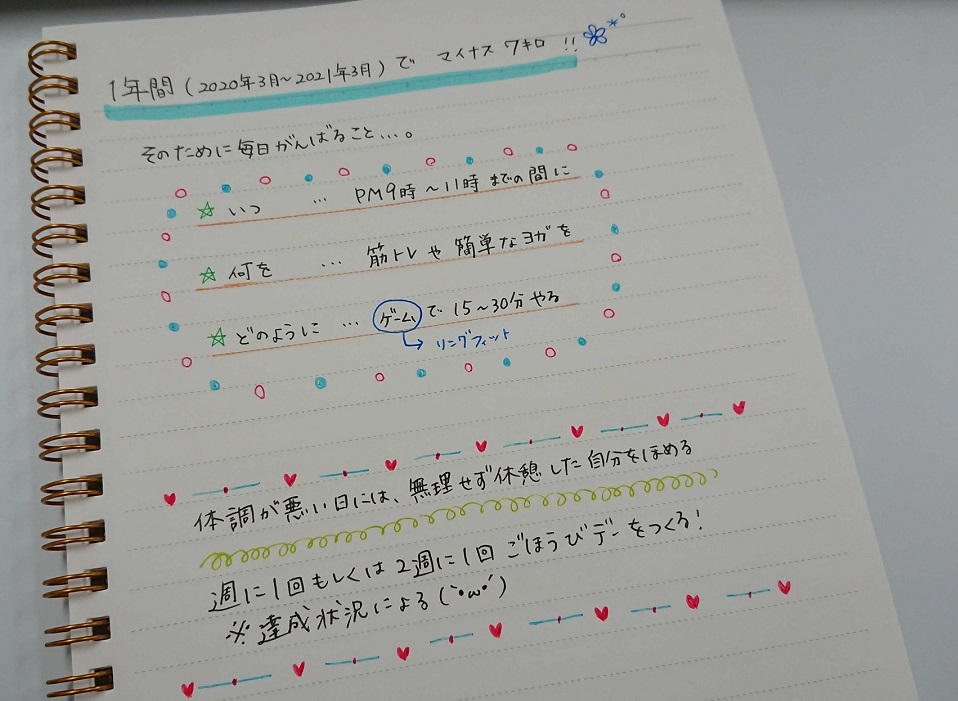 1年間(2020年3月~2021年3月)で マイナス 7キロ!!
そのために毎日がんばること…。
☆いつ … PM9時~11時までの間に
☆何を … 筋トレや簡単なヨガを
☆どのように … ゲームで15~30分やる
リングフィット
体調が悪い日には、無理せず休憩した自分をほめる
週に1回もしくは2週に1回ごほうびデーをつくる!
※達成状況による(`・ω・´)